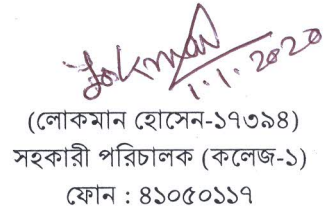 Lokman
1.1.2020
(লোকমান হোসেন-১৭৩৯৪)
সহকারী পরিচালক (কলেজ-১)
ফোন : ৪১০৫০১১৭